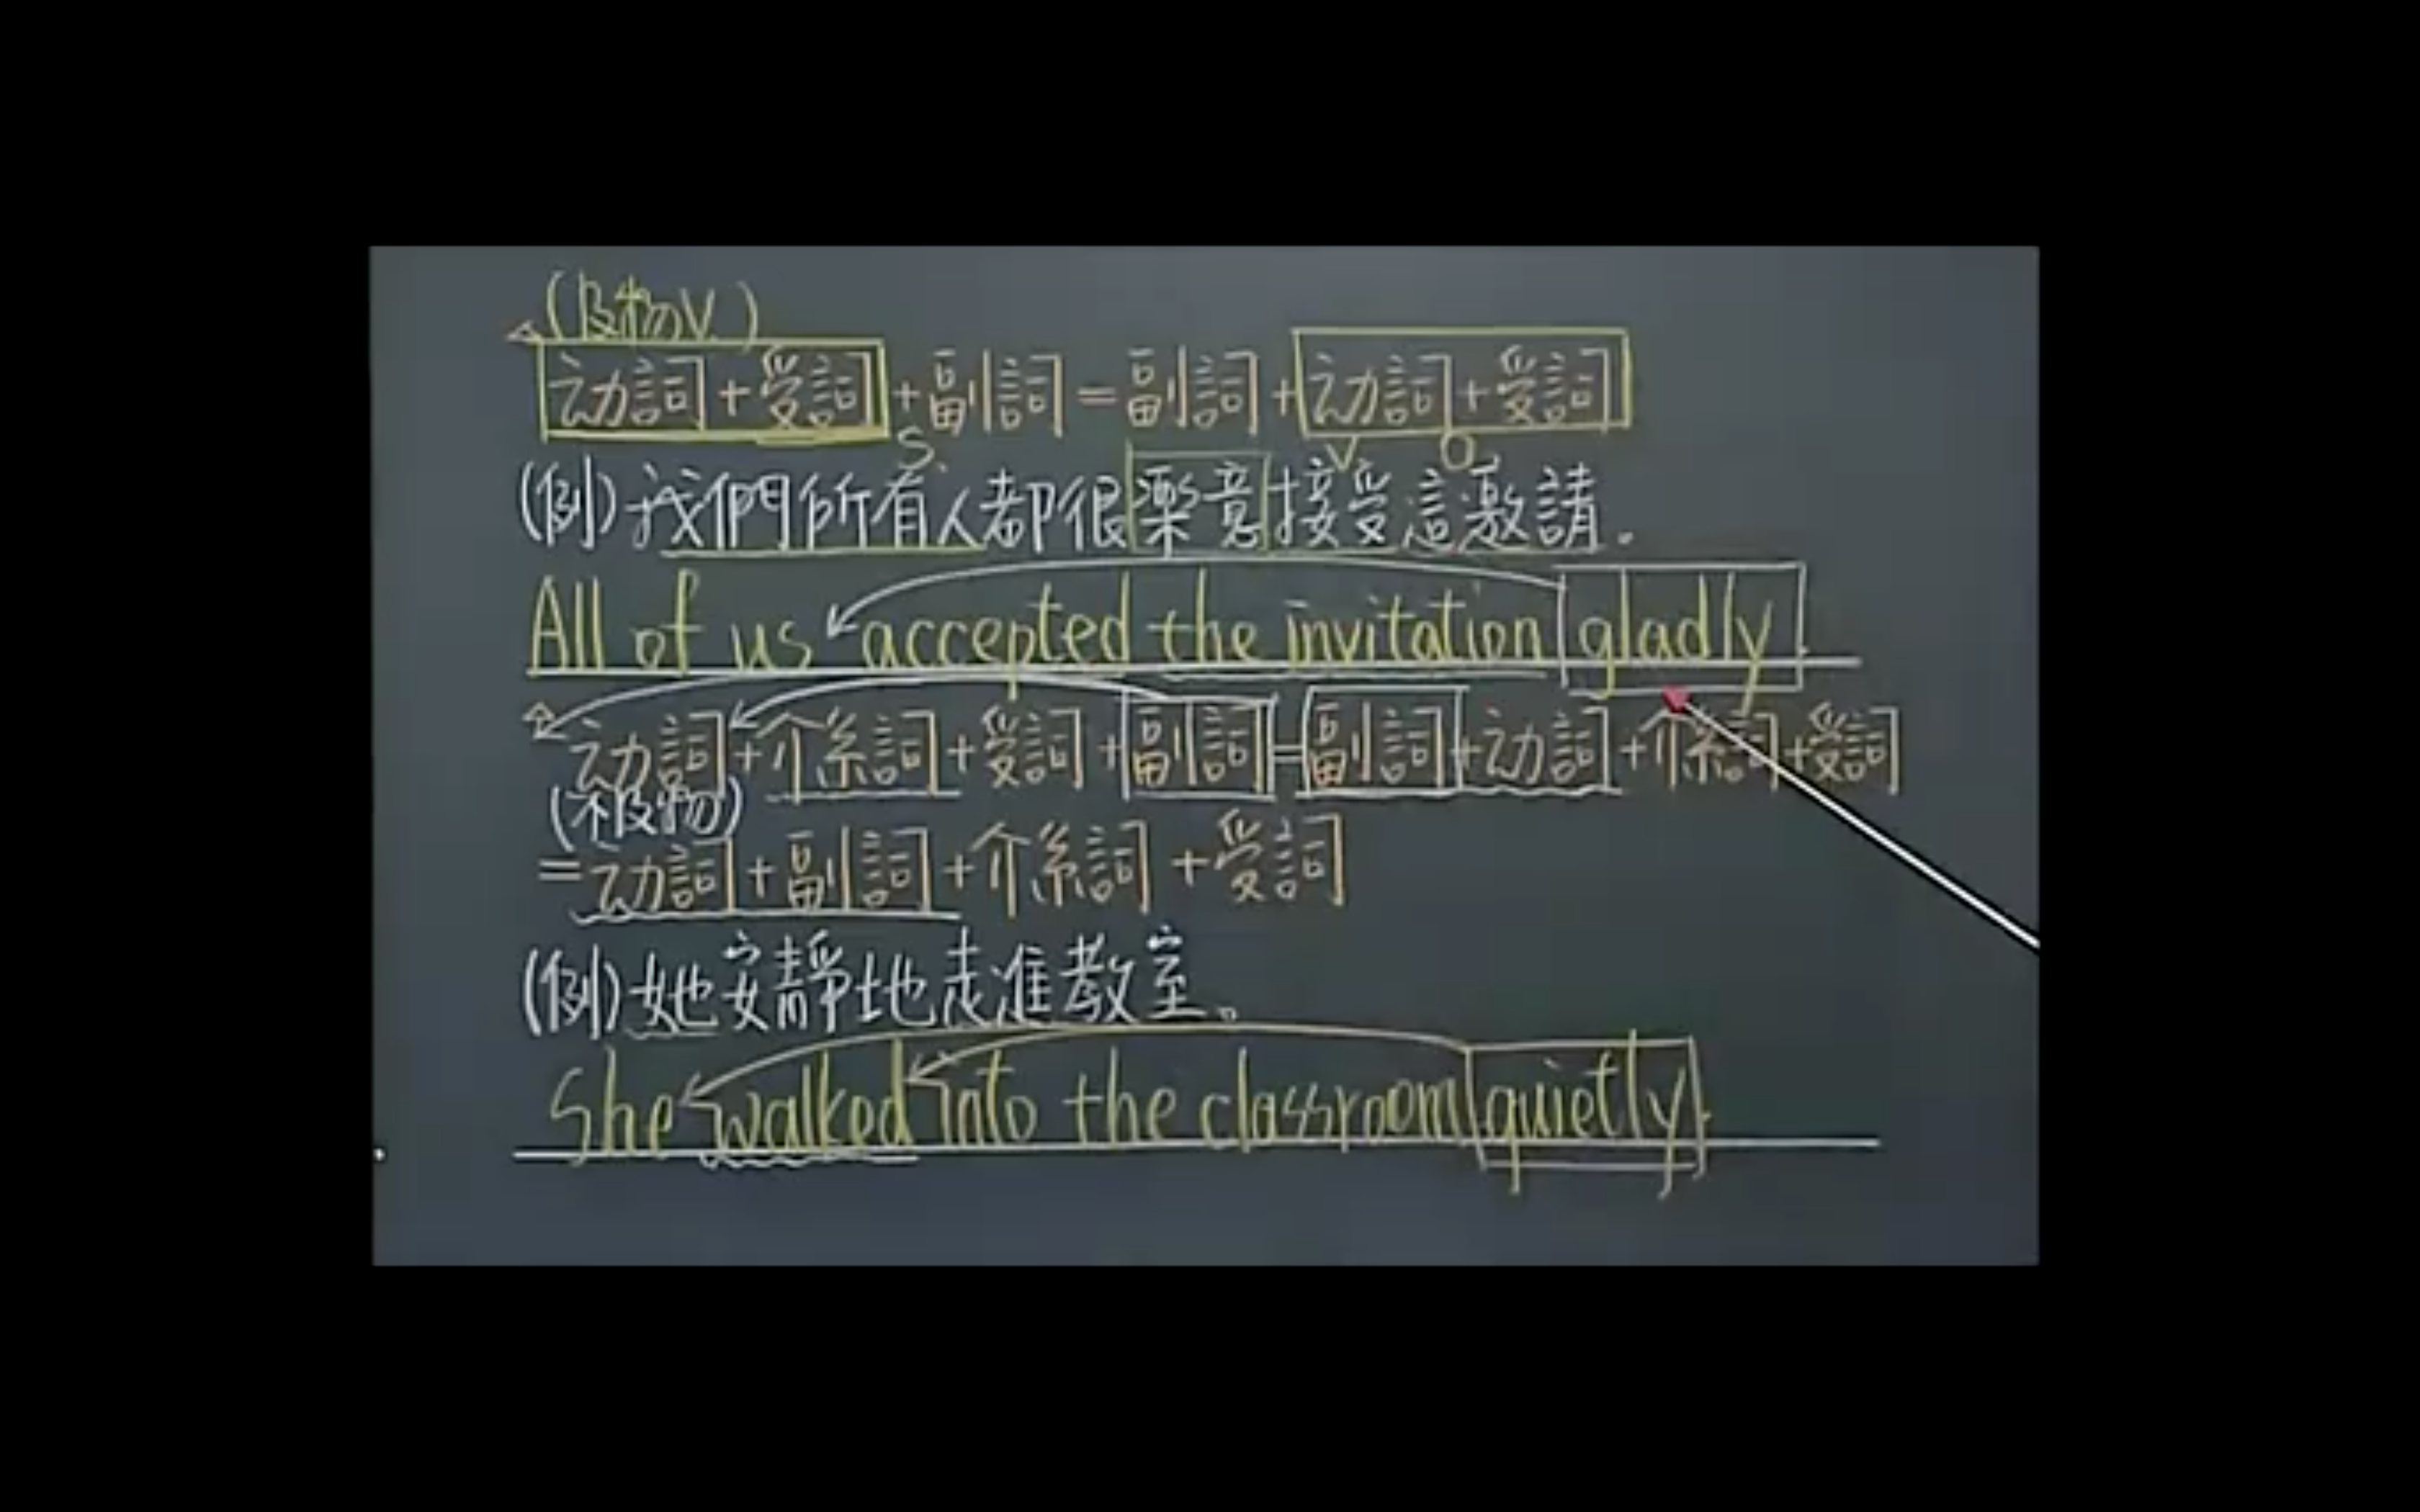 (及物V.)
动詞+受詞+副詞=副詞+动詞+受詞
S. V O
(例)我們所有人都很樂意接受這邀請.
All of us accepted the invitation gladly.
动詞+介系詞+受詞+副詞=副詞+动詞+介系詞+受詞
(不及物)
=动詞+副詞+介系詞+受詞
(例)她安靜地走進教室。
She walked into the classroom quietly.